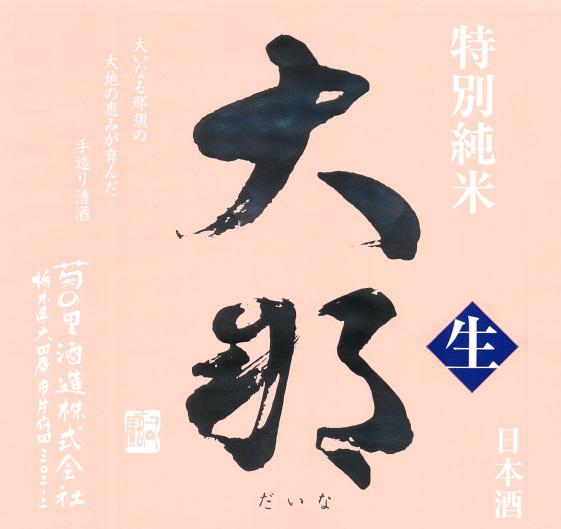 特別純米
生
日本酒
大那
だいな
大いなる那須の
大地の恵みが育んだ
手造り清酒
菊の里酒造株式会社
栃木県大田原市片府田三〇二-二